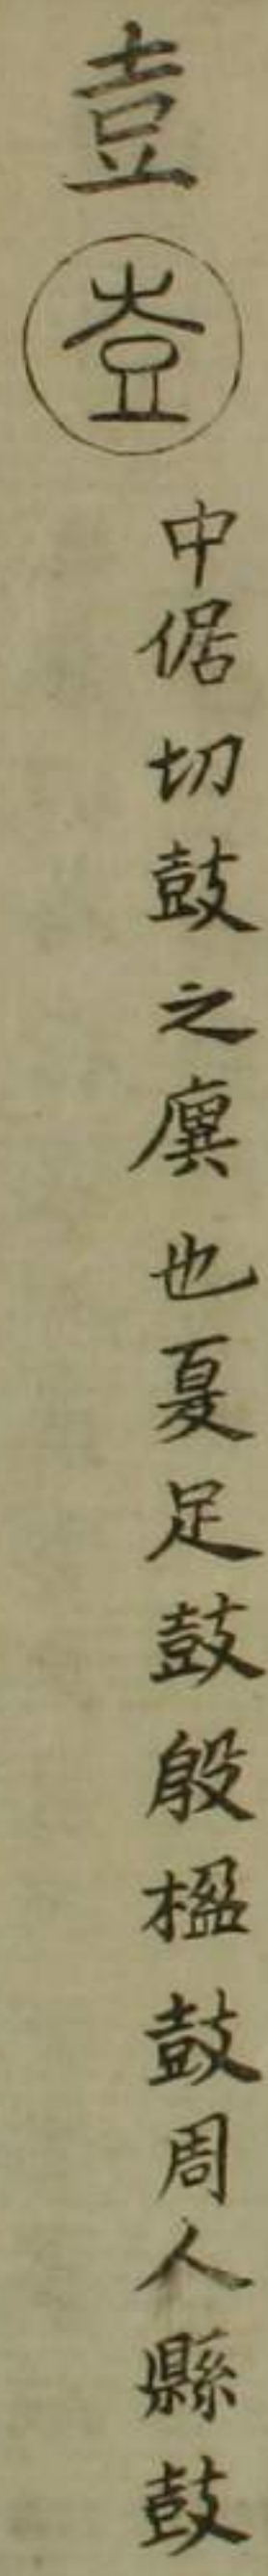 壴
壴
中倨切鼓之廙也夏足鼓殷楹鼓周人縣鼓